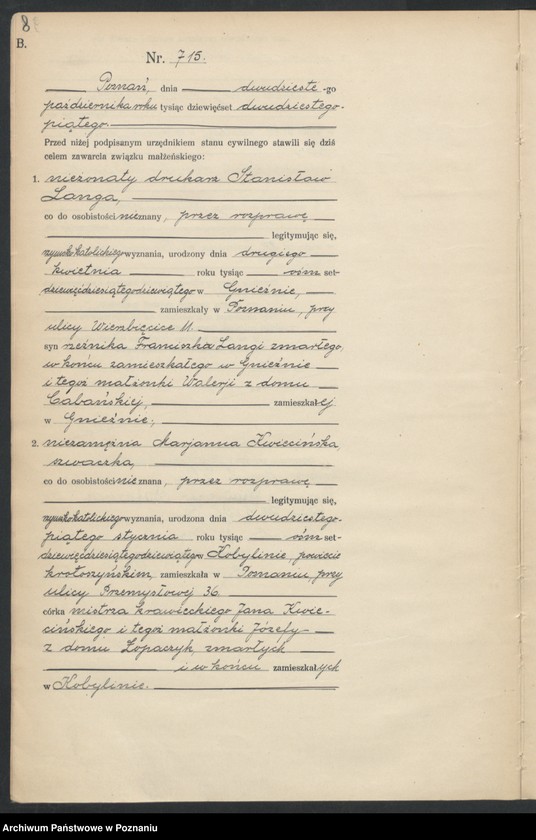 8
B.
Nr. 715.
Poznań, dnia dwudzieste -go
października roku tysiąc dziewięćset dwudziestego-
piątego
Przed niżej podpisanym urzędnikiem stanu cywilnego stawili się dziś
celem zawarcia związku małżeńskiego:
1. nieżonaty drukarz Stanisław
Langa,
co do osobistości nieznany, przez rozprawę
legitymując się,
rzymsko katolickiego wyznania, urodzony dnia drugiego
kwietnia roku tysiąc ośm set-
dziewięćdziesiątego dziewiątego w Gnieźnie,
zamieszkały w Poznaniu, przy
ulicy Wierzbięcice 11.
syn rzeźnika Franciszka Langi zmarłego,
w końcu zamieszkałego w Gnieźnie
i tegoż małżonki Walerji z domu
Cabańskiej, zamieszkał-ej
w Gnieźnie;
2. niezamężna Marjanna Kwiecińska,
szwaczka,
co do osobistości nieznana, przez rozprawę
legitymując się,
rzymsko katolickiego wyznania, urodzona dnia dwudziestego-
piątego stycznia roku tysiąc ośm set-
dziewięćdziesiątego dziewiątego w Kobylinie, powiecie
krotoszyńskim, zamieszkała w Poznaniu, przy
ulicy Przemysłowej 36.
córka mistrza krawieckiego Jana Kwie-
cińskiego i tegoż małżonki Józefy
z domu Łopaczyk, zmarłych
i w końcu zamieszkałych
w Kobylinie.
Archiwum Państwowe w Poznaniu